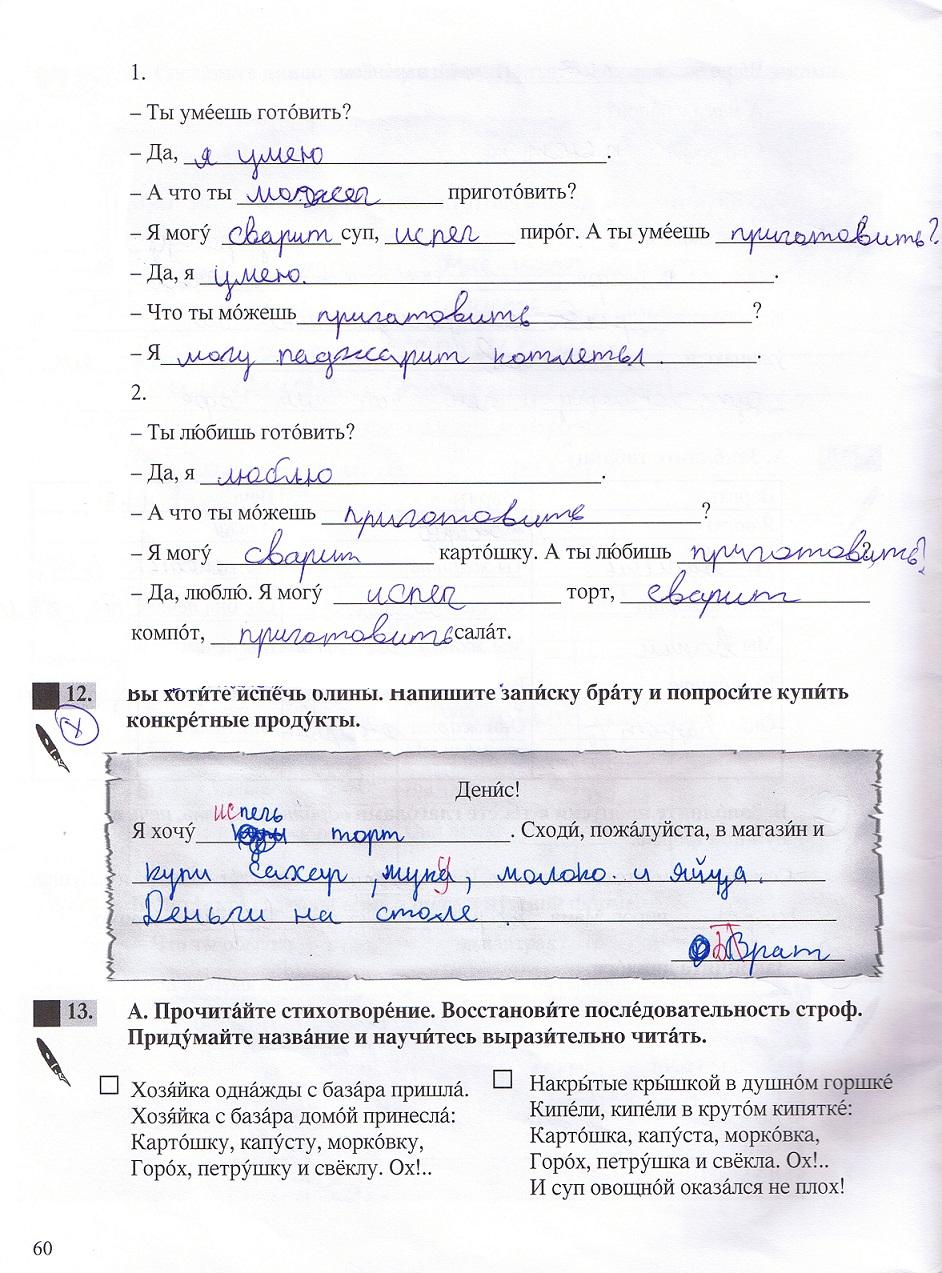 1.
– Ты уме́ешь гото́вить?
– Да, я умею.
– А что ты можеш пригото́вить?
– Я могу́ сварит суп, испеч пиро́г. А ты уме́ешь пригатовить?
– Да, я умею.
– Что ты мо́жешь пригатовить?
– Я могу паджарит котлеты.
2.
– Ты лю́бишь гото́вить?
– Да, я люблю.
– А что ты мо́жешь приготовить?
– Я могу́ сварит карто́шку. А ты лю́бишь приготовить?
– Да, люблю́. Я могу́ испеч торт, сварит
компо́т, приготовить сала́т.
12. Вы хоти́те испе́чь блины. Напиши́те запи́ску бра́ту и попроси́те купи́ть
конкре́тные проду́кты.
Дени́с!
Я хочу́ испечь торт. Сходи́, пожа́луйста, в магази́н и
купи сахар, мука, молоко и яйца.
Деньги на столе.
Брат
13. А. Прочита́йте стихотворе́ние. Восстанови́те после́довательность строф.
Приду́майте назва́ние и научи́тесь вырази́тельно чита́ть.
Хозя́йка одна́жды с база́ра пришла́.
Хозя́йка с база́ра домо́й принесла́:
Карто́шку, капу́сту, морко́вку,
Горо́х, петру́шку и свёклу. Ох!..
Накры́тые кры́шкой в душно́м горшке́
Кипе́ли, кипе́ли в круто́м кипятке́:
Карто́шка, капу́ста, морко́вка,
Горо́х, петру́шка и свёкла. Ох!..
И суп овощно́й оказа́лся не плох!
60